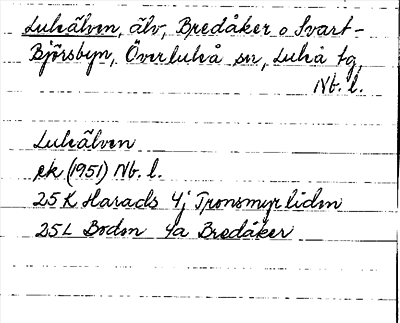 Luleälven, älv, Bredåker o Svart-
Björsbyn, Överluleå sn, Luleå tg,
Nb. l.
Luleälven
ek (1951) Nb. l.
25 K Harads 4j Tronsmyrliden
25 L Boden 4a Bredåker